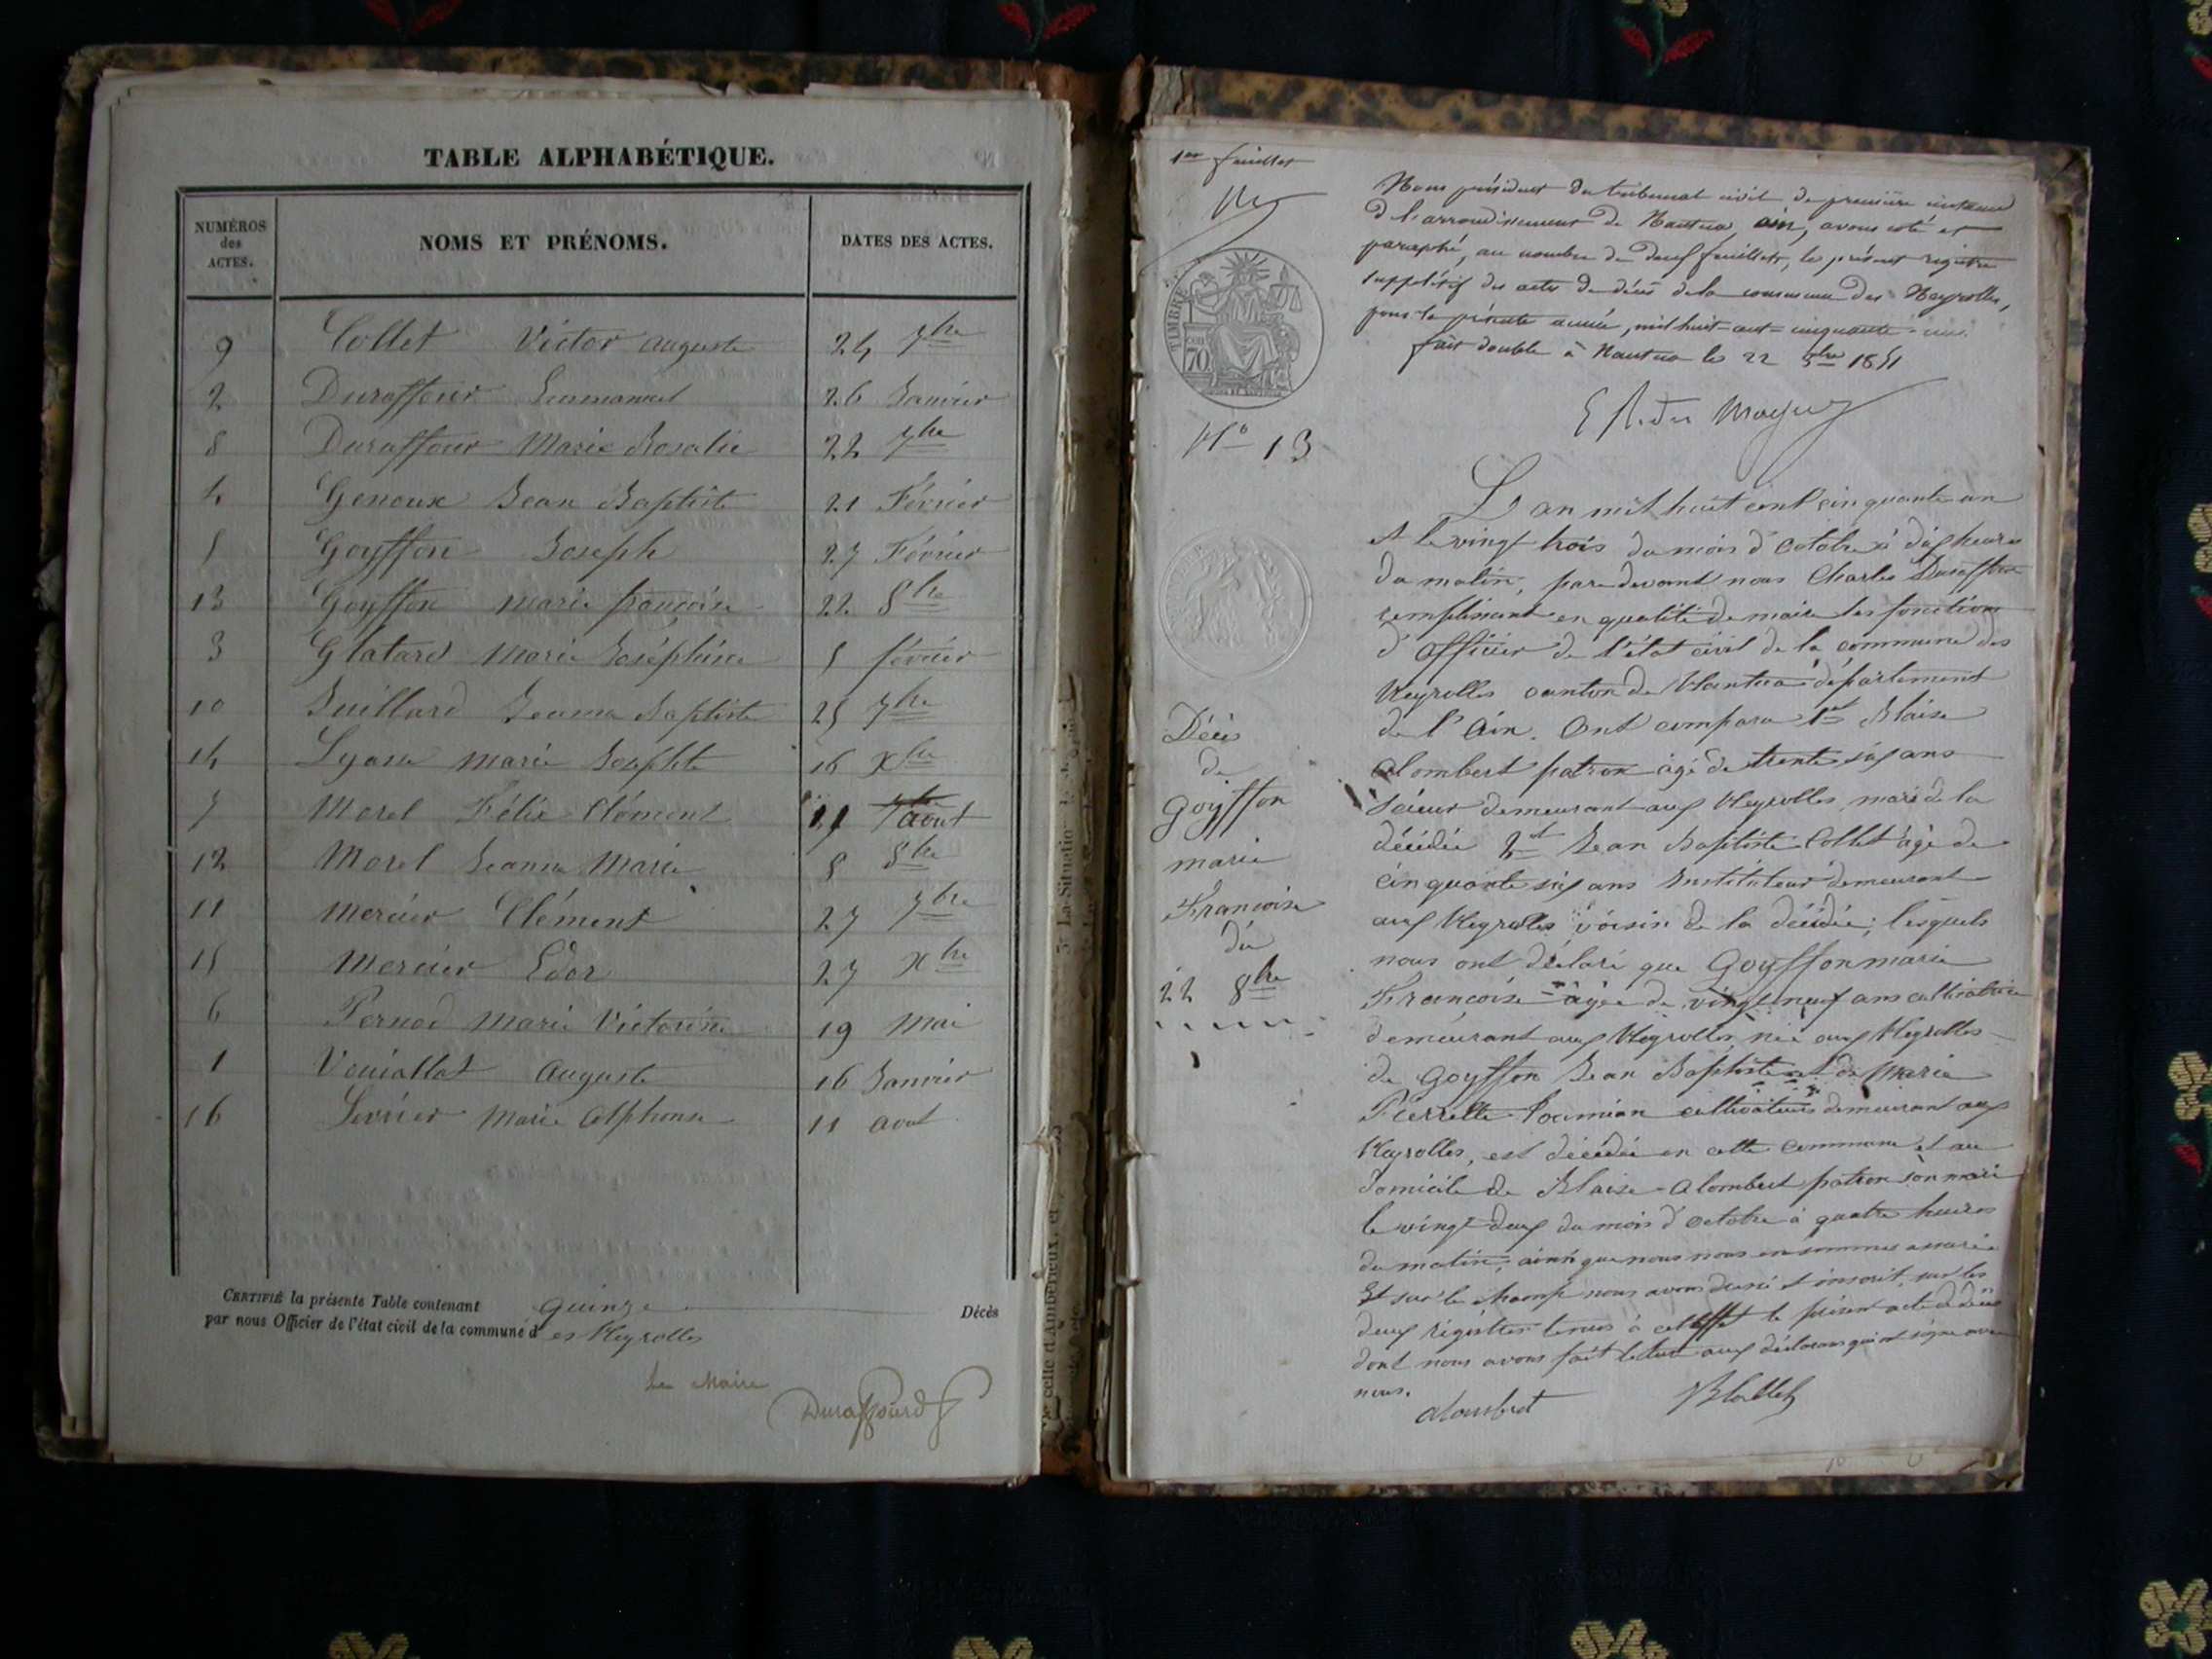 TABLE ALPHABÉTIQUE.
NUMÉROS des ACTES.
NOMS ET PRÉNOMS.
DATES DES ACTES.
9 Collet Victor auguste 24 7bre
2 Duraffour Emmanuel 26 Janvier
8 Duraffour Marie Rosalie 22 7bre
4 Genoux Jean Baptiste 21 Février
5 Goyffon Joseph 27 Février
13 Goyffon marie françoise 22 8bre
3 Glatard Marie Joséphine 5 février
10 Juillard Jeanne Baptiste 25 7bre
14 Lyasse marie Josephte 16 Xbre
7 Morel Félix Clément août
12 Morel Jeanne Marie 5 8bre
11 Mercier Clément 27 7bre
15 Mercier Edor 27 Xbre
6 Pernod Marie Victorine 19 Mai
1 Vouiallat Auguste 16 Janvier
16 Marie Alphonse 11 avril
CERTIFIÉ la présente Table contenant quinze Décès
par nous Officier de l'état civil de la commune d es Neyrolles
Le Maire
Duraffourd
1er feuillet
TIMBRE
70
Nous président du tribunal civil de première instance
de l'arrondissement de Nantua, ain, avons coté et
paraphé, au nombre de deux feuillets, le présent registre
supplétif des actes de décès de la commune des Neyrolles,
pour la présente année, mil huit-cent-cinquante-un.
fait double à Nantua le 22 8bre 1851
N° 13
Décès
de
Goyffon
marie
Francoise
du
22 8bre
L'an mil huit cent cinquante un
et le vingt trois du mois d'octobre à dix heures
du matin, par devant nous Charles Duraffour
remplissant en qualité de maire les fonctions
d'officier de l'état civil de la commune des
Neyrolles canton de Nantua département
de l'Ain. Ont comparu 1et Blaise
Alombert patron âgé de trente six ans
scieur demeurant aux Neyrolles, mari de la
décédée 2et Jean Baptiste Collet âgé de
cinquante six ans Instituteur demeurant
aux Neyrolles voisin de la décédée; lesquels
nous ont déclaré que Goyffon marie
Francoise âgée de vingt neuf ans cultivatrice
demeurant aux Neyrolles, née aux Neyrolles
de Goyffon Jean Baptiste et de Marie
Pierrette cultivateurs demeurant aux
Neyrolles, est décédée en cette commune et au
domicile de Blaise Alombert patron son mari
le vingt deux du mois d'octobre à quatre heures
du matin, ainsi que nous nous en sommes assuré.
Et sur le champ nous avons dressé et inscrit, sur les
deux régistres tenus à cet effet le présent acte de décès
dont nous avons fait lecture aux déclarans qui ont signé avec
nous.
alombert JB Collet